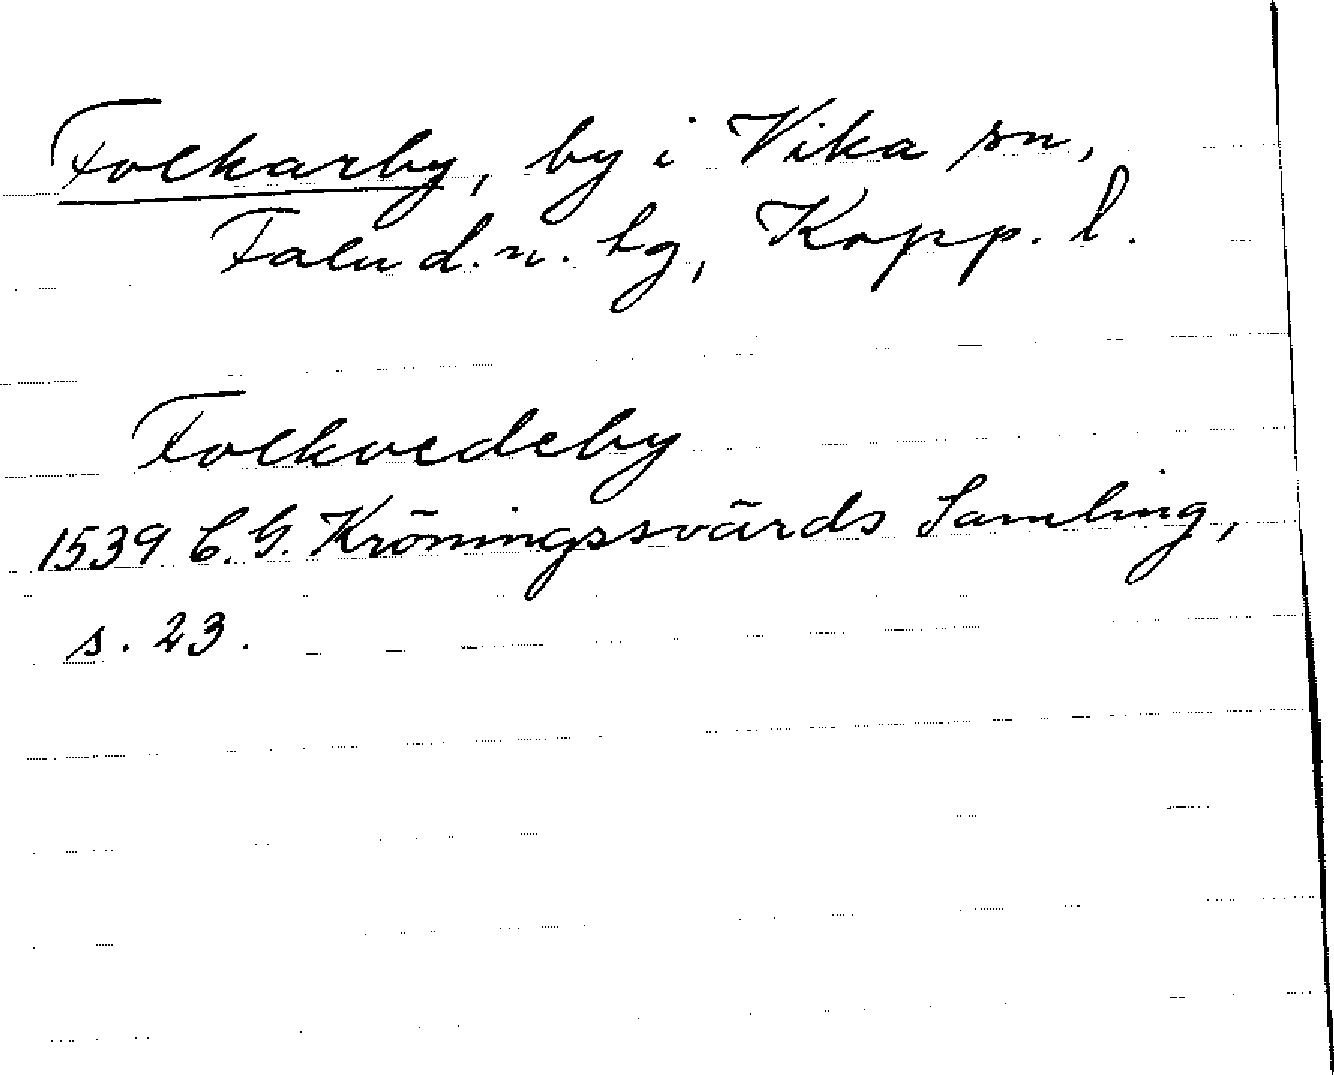 Folkarby, by i Vika sn,
Falu d.n. hg, Kopp. l.
Folkvedeby
1539 C.G. Kröningssvärds Samling,
s. 23.